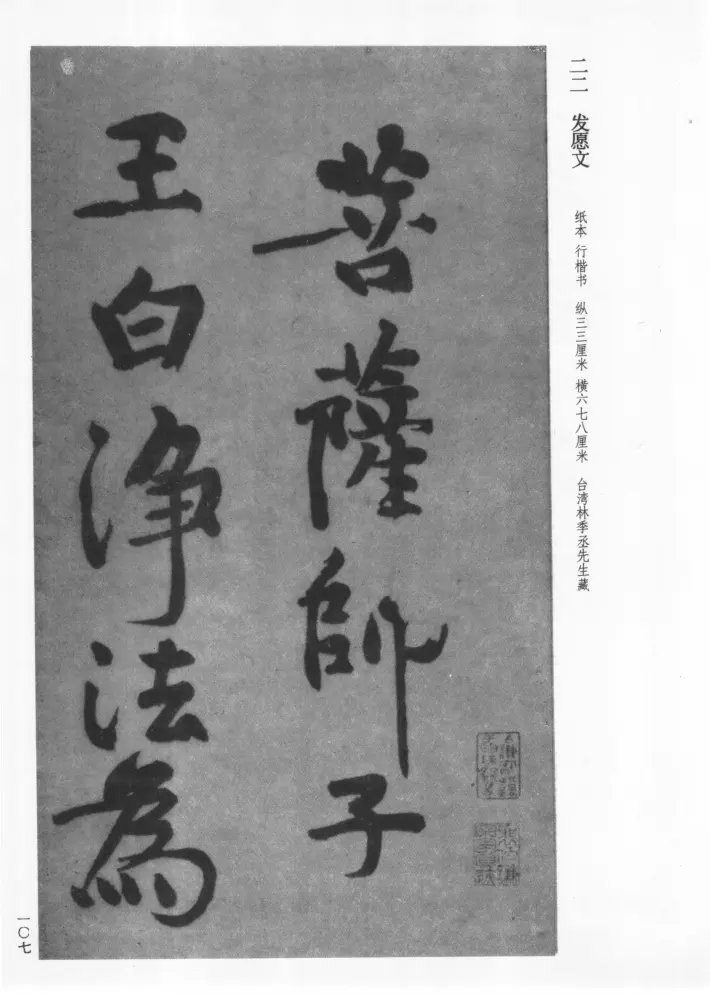 二二 发愿文
纸本 行楷书 纵三三厘米 横六七八厘米 台湾林季丞先生藏
菩薩師子
王白净法為
一〇七